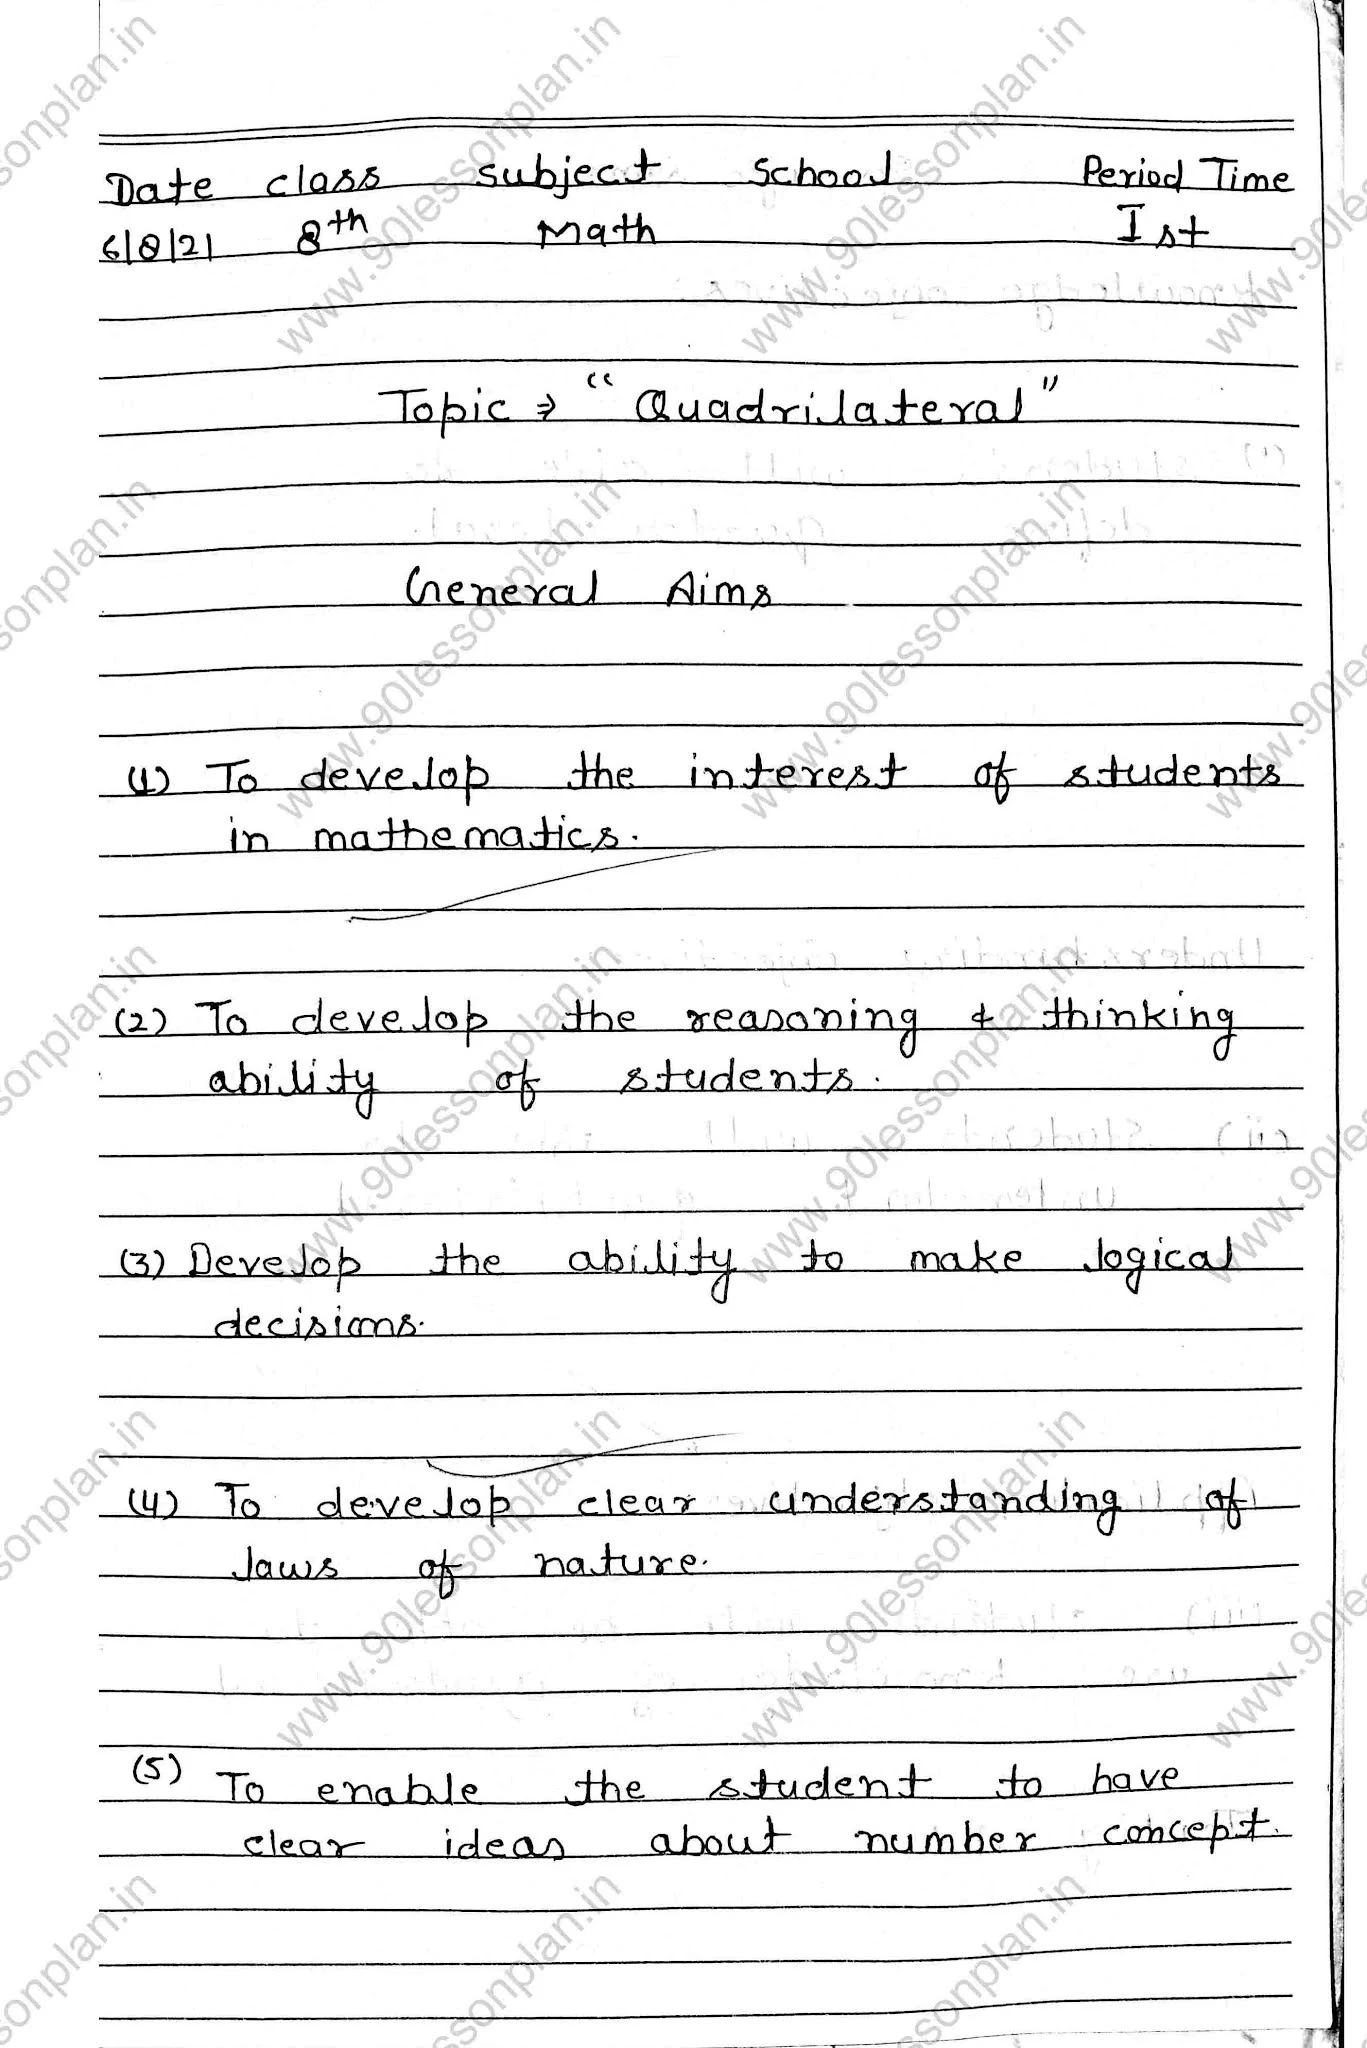 Date class subject school Period Time
6/8/21 8th Math Ist
Topic ⇒ "Quadrilateral"
General Aims
(1) To develop the interest of students
in mathematics.
(2) To develop the reasoning & thinking
ability of students.
(3) Develop the ability to make logical
decisions.
(4) To develop clear understanding of
laws of nature.
(5) To enable the student to have
clear ideas about number concept.
www.90lessonplan.in